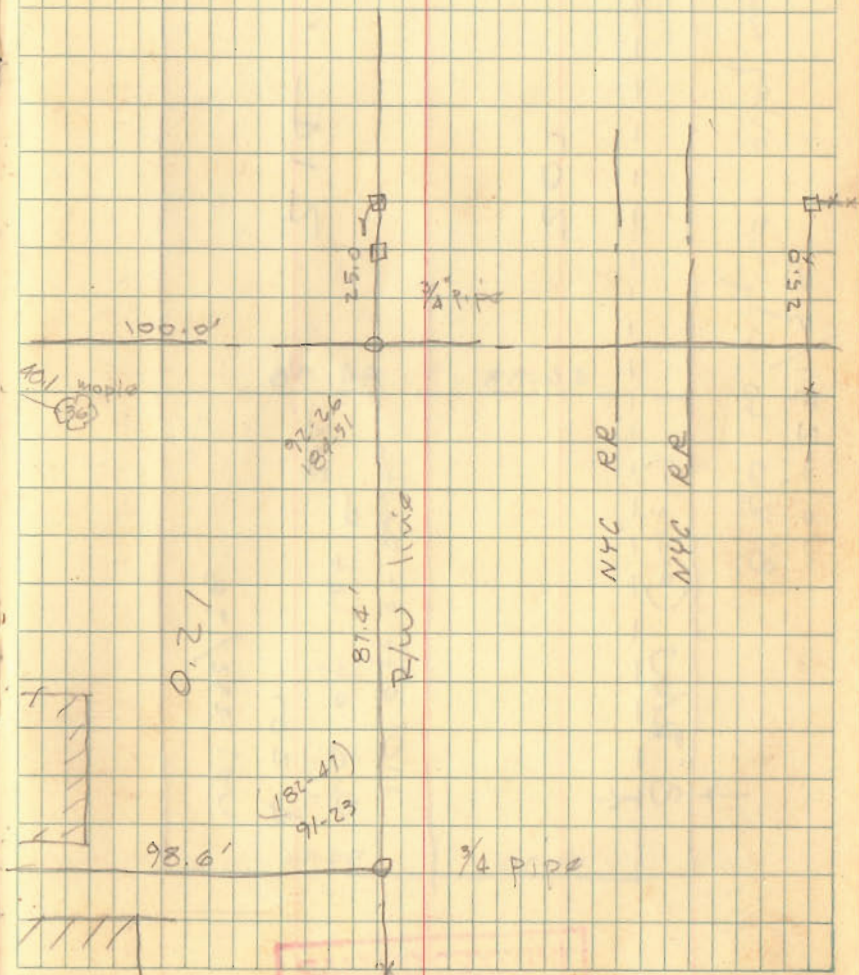 25.0
3/4" pipe
25.0
100.0'
40.1
36
maple
92-26
184-51
NYC RR
NYC RR
87.4'
R/W line
0.21
(182-47)
91-23
98.6'
3/4 pipe